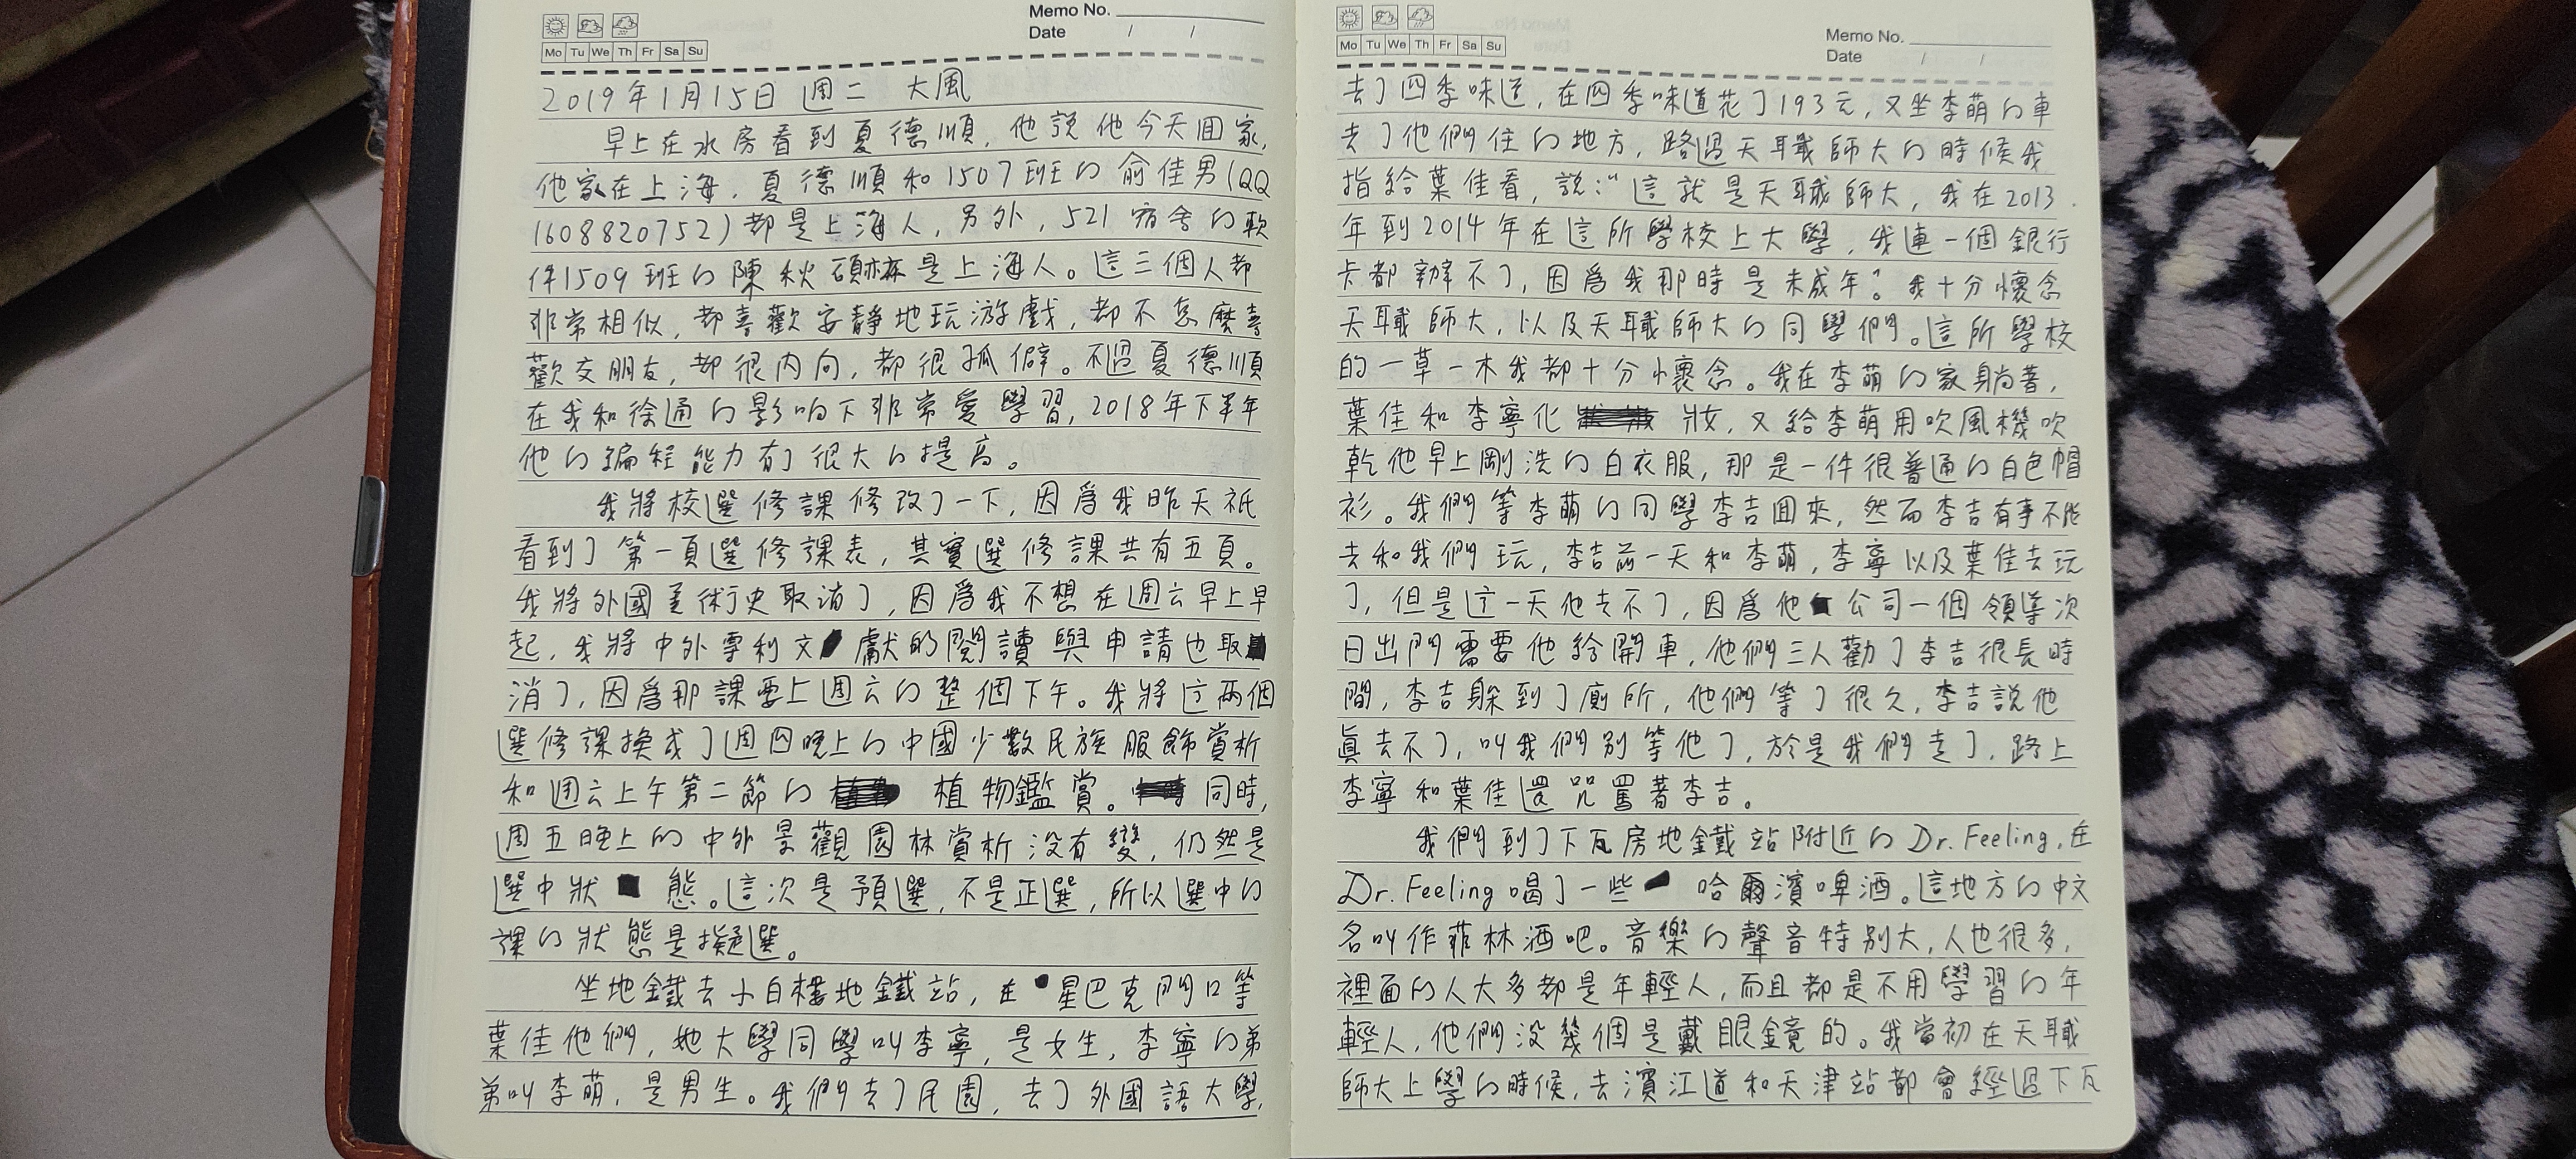 Memo No.
Date / /
Mo Tu We Th Fr Sa Su
2019年1月15日 週二 大風
早上在水房看到夏德順，他說他今天回家，
他家在上海，夏德順和1507班的俞佳男(QQ
1608820752)都是上海人，另外，521宿舍的軟
件1509班的陳秋碩麻是上海人。這三個人都
非常相似，都喜歡安靜地玩游戲，都不怎麽喜
歡交朋友，都很内向，都很孤僻。不過夏德順
在我和徐通的影响下非常愛學習，2018年下半年
他的編程能力有了很大的提高。
我將校選修課修改了一下，因爲我昨天祇
看到了第一頁選修課表，其實選修課共有五頁。
我將外國美術史取消了，因爲我不想在週六早上早
起，我將中外專利文獻的閱讀與申請也取
消了，因爲那課要上週六的整個下午。我將这兩個
選修課換成了週四晚上的中國少數民族服飾賞析
和週六上午第二節的植物鑑賞。同時，
週五晚上的中外景觀園林賞析没有變，仍然是
選中狀態。這次是預選，不是正選，所以選中的
課的狀態是擬選。
坐地鐵去小白樓地鐵站，在星巴克門口等
葉佳他們，她大學同學叫李寧，是女生，李寧的弟
弟叫李萌，是男生。我們去了民園，去了外國語大學，
Mo Tu We Th Fr Sa Su
Memo No.
Date / /
去了四季味道，在四季味道花了193元，又坐李萌的車
去了他們住的地方，路過天職師大的時候我
指給葉佳看，說：“這就是天職師大，我在2013
年到2014年在這所學校上大學，我連一個銀行
卡都辦不了，因爲我那時是未成年”。我十分懷念
天職師大，以及天職師大的同學們。這所學校
的一草一木我都十分懷念。我在李萌的家躺著，
葉佳和李寧化妝，又給李萌用吹風機吹
乾他早上剛洗的白衣服，那是一件很普通的白色帽
衫。我們等李萌的同學李吉回來，然而李吉有事不能
去和我們玩，李吉前一天和李萌，李寧以及葉佳去玩
了，但是这一天他去不了，因爲他公司一個領導次
日出門需要他給開車，他們三人勸了李吉很長時
間，李吉躲到了廁所，他們等了很久，李吉說他
真去不了，叫我們别等他了，於是我們走了，路上
李寧和葉佳還咒罵著李吉。
我們到了下瓦房地鐵站附近的Dr. Feeling，在
Dr. Feeling喝了一些哈爾濱啤酒。這地方的中文
名叫作菲林酒吧。音樂的聲音特别大，人也很多，
裡面的人大多都是年輕人，而且都是不用學習的年
輕人，他們没幾個是戴眼鏡的。我當初在天職
師大上學的時候，去濱江道和天津站都會經過下瓦